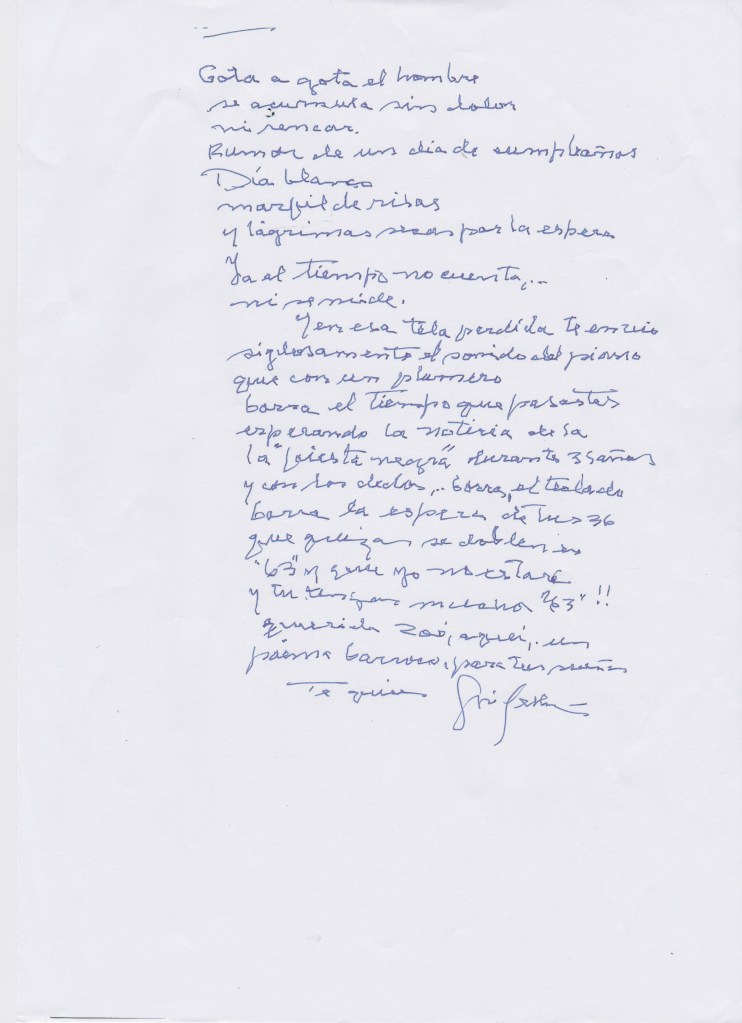 Gota a gota el hombre
se acumula sin dolor
ni rencor.
Rumor de un día de cumpleaños
Día blanco
marfil de risas
y lágrimas secas por la espera
Ya el tiempo no cuenta,..
ni se mide.
Y en esa tela perdida te envio
sigilosamente el sonido del piano
que con un plumero
borra el tiempo que pasastes
esperando la noticia de la
la "fiesta negra" durante 35 años
y con los dedos,.. borra, el teclado
borra la espera de tus 36
que quizas se doblen en
"63" y que yo no estaré
y tu tengas "63" !!
querida Zoé, aquí,. un
poema barroco, para tus sueños
Te quiero